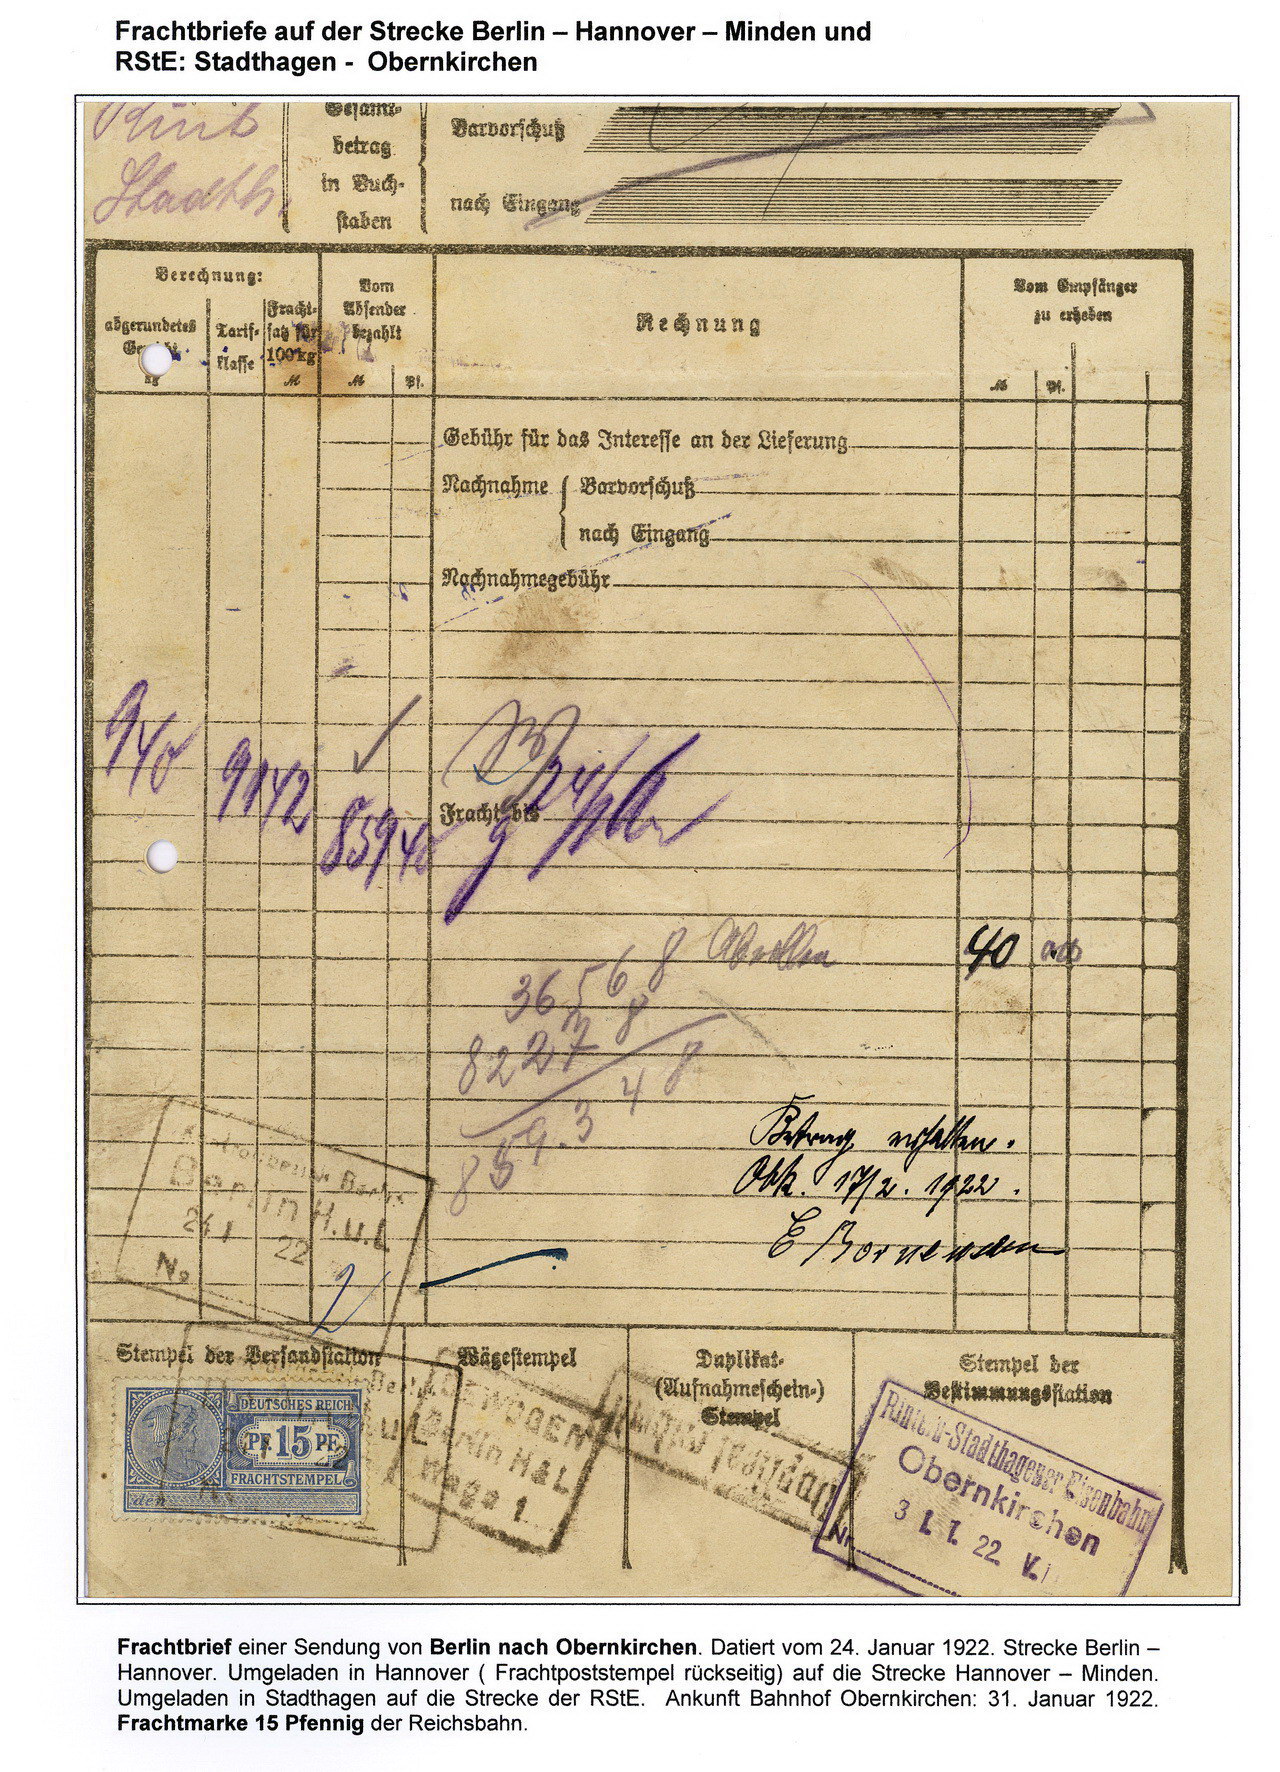 Frachtbriefe auf der Strecke Berlin – Hannover – Minden und
RStE: Stadthagen - Obernkirchen
Rint
Stadth.
Gesamt-
betrag
in Buch-
staben
Barvorschuß
nach Eingang
Berechnung:
abgerundetes
kg
Tarif-
klasse
Fracht-
satz für
100 kg
M
Vom
Absender
bezahlt
M Pf.
Rechnung
Vom Empfänger
zu erheben
M Pf.
Gebühr für das Interesse an der Lieferung
Nachnahme { Barvorschuß
nach Eingang
Nachnahmegebühr
940
9142
85940
Fracht bis
40
36568
8227
859.348
Betrag erhalten.
Obk. 17/2. 1922.
Berlin H.u.L
24 1 22
No
Stempel der Versandstation
Wägestempel
Duplikat-
(Aufnahmeschein-)
Stempel
Stempel der
Bestimmungsstation
DEUTSCHES REICH
PF. 15 PF.
FRACHTSTEMPEL
den
GEWOGEN
Berlin H&L
Wage 1
Rinteln-Stadthagener Eisenbahn
Obernkirchen
31. 1. 22 V.
Nr.
Frachtbrief einer Sendung von Berlin nach Obernkirchen. Datiert vom 24. Januar 1922. Strecke Berlin –
Hannover. Umgeladen in Hannover ( Frachtpoststempel rückseitig) auf die Strecke Hannover – Minden.
Umgeladen in Stadthagen auf die Strecke der RStE. Ankunft Bahnhof Obernkirchen: 31. Januar 1922.
Frachtmarke 15 Pfennig der Reichsbahn.